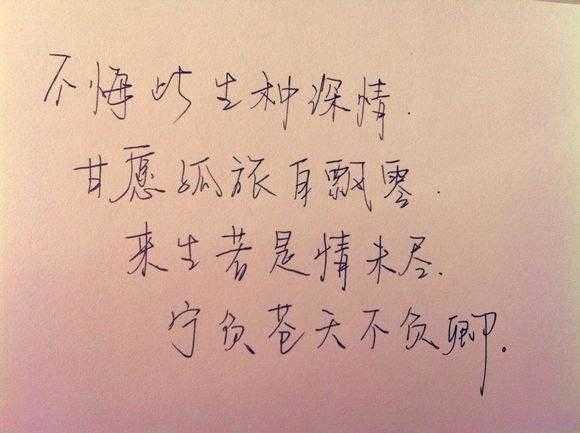 不悔此生种深情.
甘愿孤旅自飘零.
来生若是情未尽.
宁负苍天不负卿.